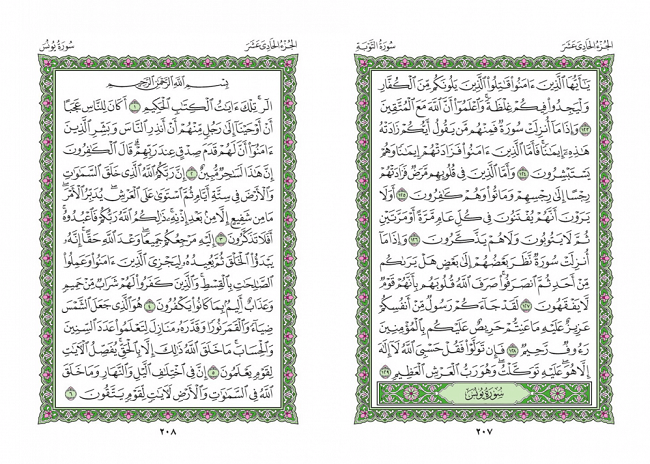 الجزء الحادي عشر
سورة التوبة
يَٰٓأَيُّهَا ٱلَّذِينَ ءَامَنُوا۟ قَٰتِلُوا۟ ٱلَّذِينَ يَلُونَكُم مِّنَ ٱلْكُفَّارِ
وَلْيَجِدُوا۟ فِيكُمْ غِلْظَةً ۚ وَٱعْلَمُوٓا۟ أَنَّ ٱللَّهَ مَعَ ٱلْمُتَّقِينَ
١٢٣ وَإِذَا مَآ أُنزِلَتْ سُورَةٌ فَمِنْهُم مَّن يَقُولُ أَيُّكُمْ زَادَتْهُ
هَٰذِهِۦٓ إِيمَٰنًا ۚ فَأَمَّا ٱلَّذِينَ ءَامَنُوا۟ فَزَادَتْهُمْ إِيمَٰنًا وَهُمْ
يَسْتَبْشِرُونَ ١٢٤ وَأَمَّا ٱلَّذِينَ فِى قُلُوبِهِم مَّرَضٌ فَزَادَتْهُمْ
رِجْسًا إِلَىٰ رِجْسِهِمْ وَمَاتُوا۟ وَهُمْ كَٰفِرُونَ ١٢٥ أَوَلَا
يَرَوْنَ أَنَّهُمْ يُفْتَنُونَ فِى كُلِّ عَامٍ مَّرَّةً أَوْ مَرَّتَيْنِ
ثُمَّ لَا يَتُوبُونَ وَلَا هُمْ يَذَّكَّرُونَ ١٢٦ وَإِذَا مَآ
أُنزِلَتْ سُورَةٌ نَّظَرَ بَعْضُهُمْ إِلَىٰ بَعْضٍ هَلْ يَرَىٰكُم
مِّنْ أَحَدٍ ثُمَّ ٱنصَرَفُوا۟ ۚ صَرَفَ ٱللَّهُ قُلُوبَهُم بِأَنَّهُمْ قَوْمٌ
لَّا يَفْقَهُونَ ١٢٧ لَقَدْ جَآءَكُمْ رَسُولٌ مِّنْ أَنفُسِكُمْ
عَزِيزٌ عَلَيْهِ مَا عَنِتُّمْ حَرِيصٌ عَلَيْكُم بِٱلْمُؤْمِنِينَ
رَءُوفٌ رَّحِيمٌ ١٢٨ فَإِن تَوَلَّوْا۟ فَقُلْ حَسْبِىَ ٱللَّهُ لَآ إِلَٰهَ
إِلَّا هُوَ ۖ عَلَيْهِ تَوَكَّلْتُ ۖ وَهُوَ رَبُّ ٱلْعَرْشِ ٱلْعَظِيمِ ١٢٩
سورة يونس
٢٠٧
الجزء الحادي عشر
سورة يونس
بِسْمِ ٱللَّهِ ٱلرَّحْمَٰنِ ٱلرَّحِيمِ
الٓر ۚ تِلْكَ ءَايَٰتُ ٱلْكِتَٰبِ ٱلْحَكِيمِ ١ أَكَانَ لِلنَّاسِ عَجَبًا
أَنْ أَوْحَيْنَآ إِلَىٰ رَجُلٍ مِّنْهُمْ أَنْ أَنذِرِ ٱلنَّاسَ وَبَشِّرِ ٱلَّذِينَ
ءَامَنُوٓا۟ أَنَّ لَهُمْ قَدَمَ صِدْقٍ عِندَ رَبِّهِمْ ۗ قَالَ ٱلْكَٰفِرُونَ
إِنَّ هَٰذَا لَسَٰحِرٌ مُّبِينٌ ٢ إِنَّ رَبَّكُمُ ٱللَّهُ ٱلَّذِى خَلَقَ ٱلسَّمَٰوَٰتِ
وَٱلْأَرْضَ فِى سِتَّةِ أَيَّامٍ ثُمَّ ٱسْتَوَىٰ عَلَى ٱلْعَرْشِ ۖ يُدَبِّرُ ٱلْأَمْرَ ۖ
مَا مِن شَفِيعٍ إِلَّا مِنۢ بَعْدِ إِذْنِهِۦ ۚ ذَٰلِكُمُ ٱللَّهُ رَبُّكُمْ فَٱعْبُدُوهُ ۚ
أَفَلَا تَذَكَّرُونَ ٣ إِلَيْهِ مَرْجِعُكُمْ جَمِيعًا ۖ وَعْدَ ٱللَّهِ حَقًّا ۚ إِنَّهُۥ
يَبْدَؤُا۟ ٱلْخَلْقَ ثُمَّ يُعِيدُهُۥ لِيَجْزِىَ ٱلَّذِينَ ءَامَنُوا۟ وَعَمِلُوا۟
ٱلصَّٰلِحَٰتِ بِٱلْقِسْطِ ۚ وَٱلَّذِينَ كَفَرُوا۟ لَهُمْ شَرَابٌ مِّنْ حَمِيمٍ
وَعَذَابٌ أَلِيمٌۢ بِمَا كَانُوا۟ يَكْفُرُونَ ٤ هُوَ ٱلَّذِى جَعَلَ ٱلشَّمْسَ
ضِيَآءً وَٱلْقَمَرَ نُورًا وَقَدَّرَهُۥ مَنَازِلَ لِتَعْلَمُوا۟ عَدَدَ ٱلسِّنِينَ
وَٱلْحِسَابَ ۚ مَا خَلَقَ ٱللَّهُ ذَٰلِكَ إِلَّا بِٱلْحَقِّ ۚ يُفَصِّلُ ٱلْءَايَٰتِ
لِقَوْمٍ يَعْلَمُونَ ٥ إِنَّ فِى ٱخْتِلَٰفِ ٱلَّيْلِ وَٱلنَّهَارِ وَمَا خَلَقَ
ٱللَّهُ فِى ٱلسَّمَٰوَٰتِ وَٱلْأَرْضِ لَءَايَٰتٍ لِّقَوْمٍ يَتَّقُونَ ٦
٢٠٨